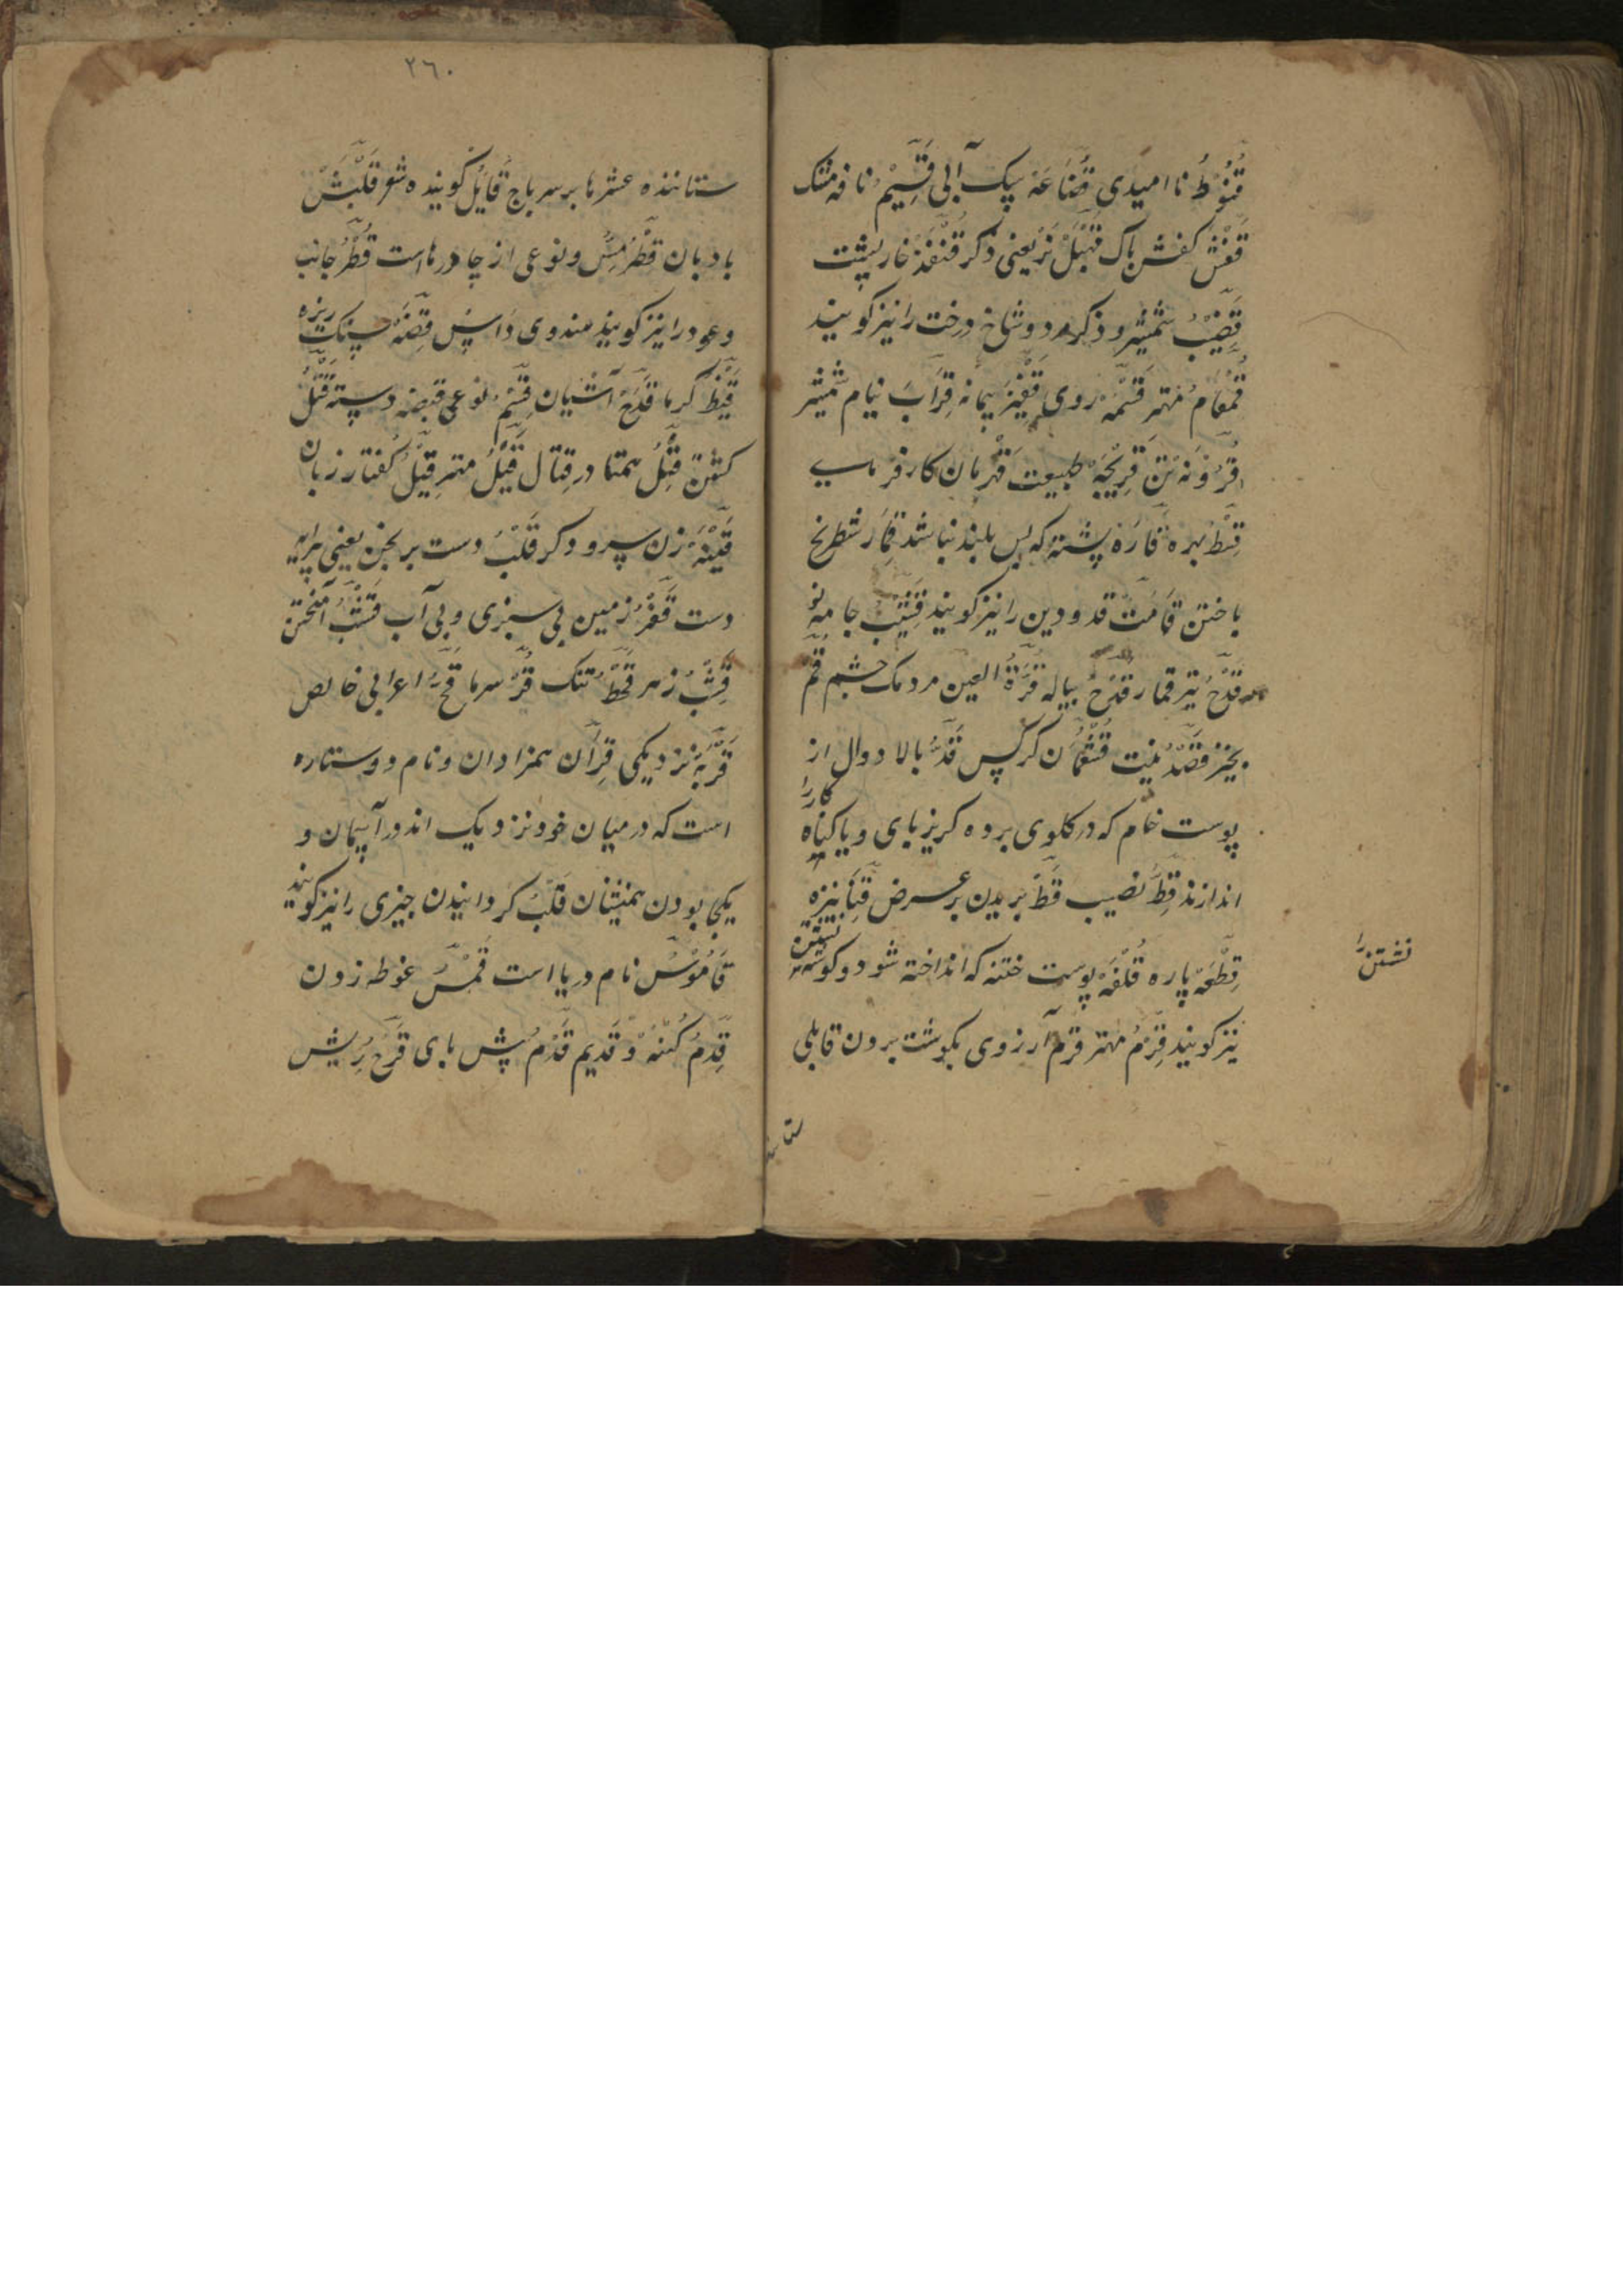 قُنُوْطُ نا امیدی قَنَاعَهْ پیک آبی قَسِیْمُ نافه مشک
قَفْشْ کفش پاک قَهْبَلْ نر یعنی ذکر قُنْفُذْ خارپشت
قَضِیْبُ شمشیر و ذکر مرد و شاخ درخت را نیز کویند
قُمْقَامُ مهتر قَسَمَهْ روی قَفِیْزْ پیمانه قِرَابْ نیام شمشیر
قَرُوْنَهْ تن قَرِیْحَهْ طبیعت قَهْرمان کارفرمای
قِسْطُ بهره قَارَهْ پشته که بس بلند نباشد قِمَار شطرنج
باختن قَامَتْ قد و دین را نیز کویند قَشِیْبُ جامه نو
قَدَحْ تیر قمار قَدَحْ پیاله قُرَّةُ العین مردمک چشم قُمْ
بخیز قَصْدْ نیت قَشْعَمَانْ کرکس قَدُّ بالا دوال از
پوست خام که در کلوی برده کریز پای و یا کناه کار را
اندازند قِطُّ نصیب قَطُّ بریدن بر عرض قَنَا نیزه
قِطْعَهْ پاره قُلْفَهْ پوست ختنه که انداخته شود و کوشه نشستن
نیز کویند قَرْمُ مهتر قَرَمْ آرزوی بکوشت بردن قابلی
نشستن را
ستانند
۲۶۰
ستاننده عشرها بر سر باج قَایِلُ کوینده شعر قَلْبَشْ
بادبان قِطْرُ مِسْ و نوعی از چادرها است قُطْرُ جانب
و عود را نیز کویند هندوی داس قِضَّهْ سنک ریزه
قَیْظُ کرما قَدَحْ آشیان قِسْمُ نوعی قبضه دسته قَتْلُ
کشتن قِتْلُ همتا در قتال قَیْلُ مهتر قِیْلُ کفتار زبان
قَیْنَهْ زن سرود کر قَلْبُ دست برنجن یعنی پیرایه
دست قَفْرُ زمین بی سبزی و بی آب قَشْبُ آمختن
قِشْبُ زهر قَحْطُ تنک قُرُّ سرما قُحُّ اعرابی خالص
قُرْبَهْ نزدیکی قِرَان همزادان و نام دو ستاره
است که در میان خود نزدیک اندور آسمان و
یکجا بودن همنشینان قَلْبُ کردانیدن چیزی را نیز کویند
قَامُوْسُ نام دریا است قَمْسُ غوطه زدن
قِدَمُ کُهنه و قَدیم قَدَمُ پش پای قَرْحُ ریش